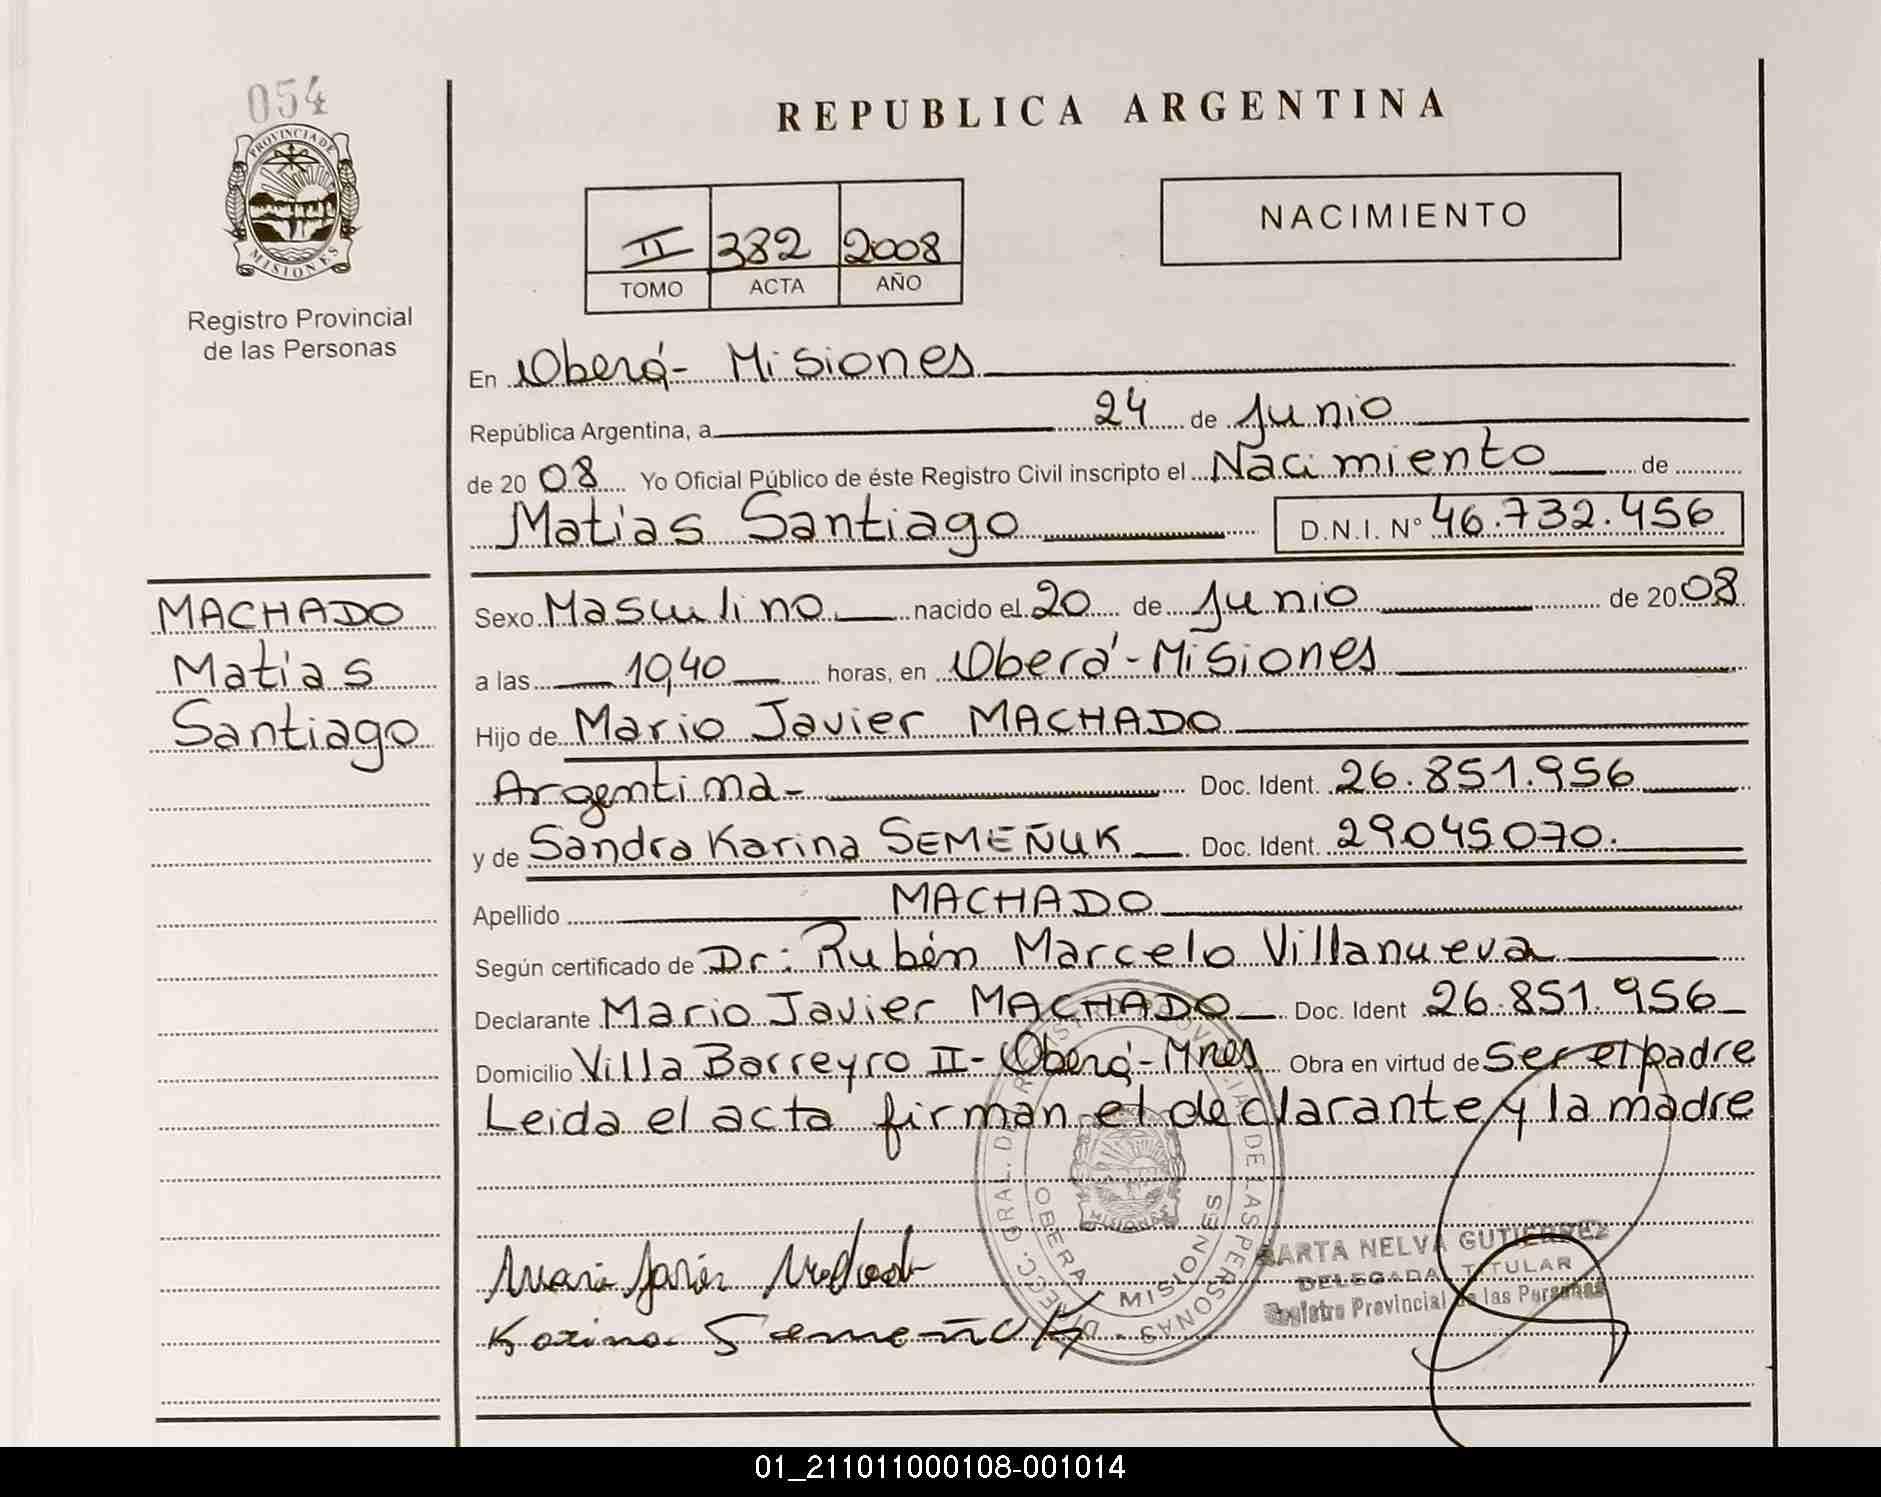 054
PROVINCIA DE
MISIONES
Registro Provincial
de las Personas
MACHADO
Matías
Santiago
REPUBLICA ARGENTINA
II 382 2008
TOMO ACTA AÑO
NACIMIENTO
En Oberá- Misiones
República Argentina, a 24 de Junio
de 2008 Yo Oficial Público de éste Registro Civil inscripto el Nacimiento de
Matías Santiago D.N.I. Nº 46.732.456
Sexo Masculino nacido el 20 de Junio de 2008
a las 10,40 horas, en Oberá-Misiones
Hijo de Mario Javier MACHADO
Argentina- Doc. Ident. 26.851.956
y de Sandra Karina SEMEÑUK Doc. Ident. 29.045.070.
Apellido MACHADO
Según certificado de Dr: Rubén Marcelo Villanueva
Declarante Mario Javier MACHADO Doc. Ident 26.851.956
Domicilio Villa Barreyro II- Oberá-Mnes Obra en virtud de Ser el padre
Leida el acta firman el declarante y la madre
Mario Javier Machado
Karina Semeñuk
OBERA MISIONES
MARTA NELVA GUTIERREZ
DELEGADA TITULAR
Registro Provincial de las Personas
01_211011000108-001014